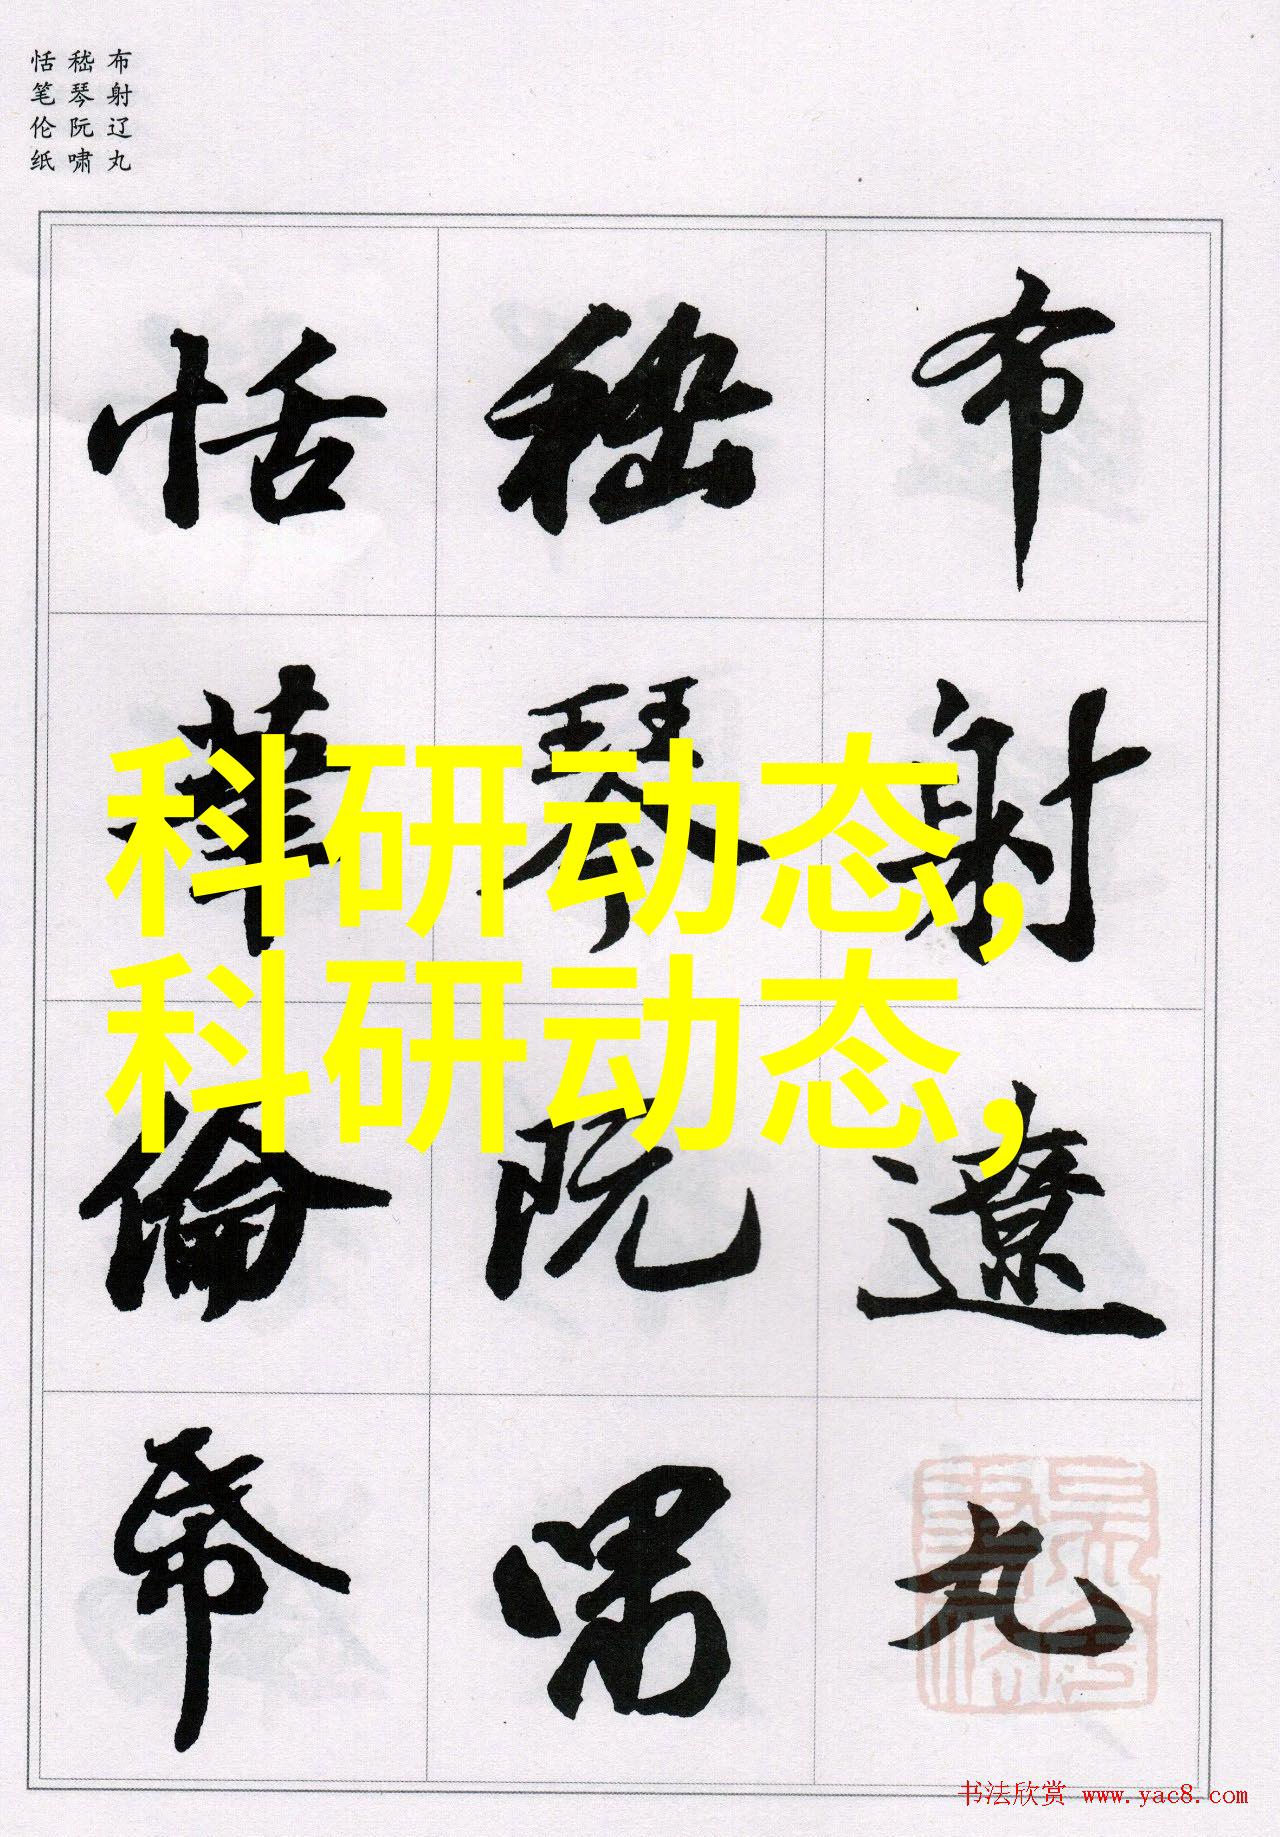 布射辽丸
嵇琴阮啸
恬笔伦纸
布射遼丸
嵇琴阮嘯
恬筆倫帋
科研动态,
科研动态,
书法欣赏 www.yac8.com